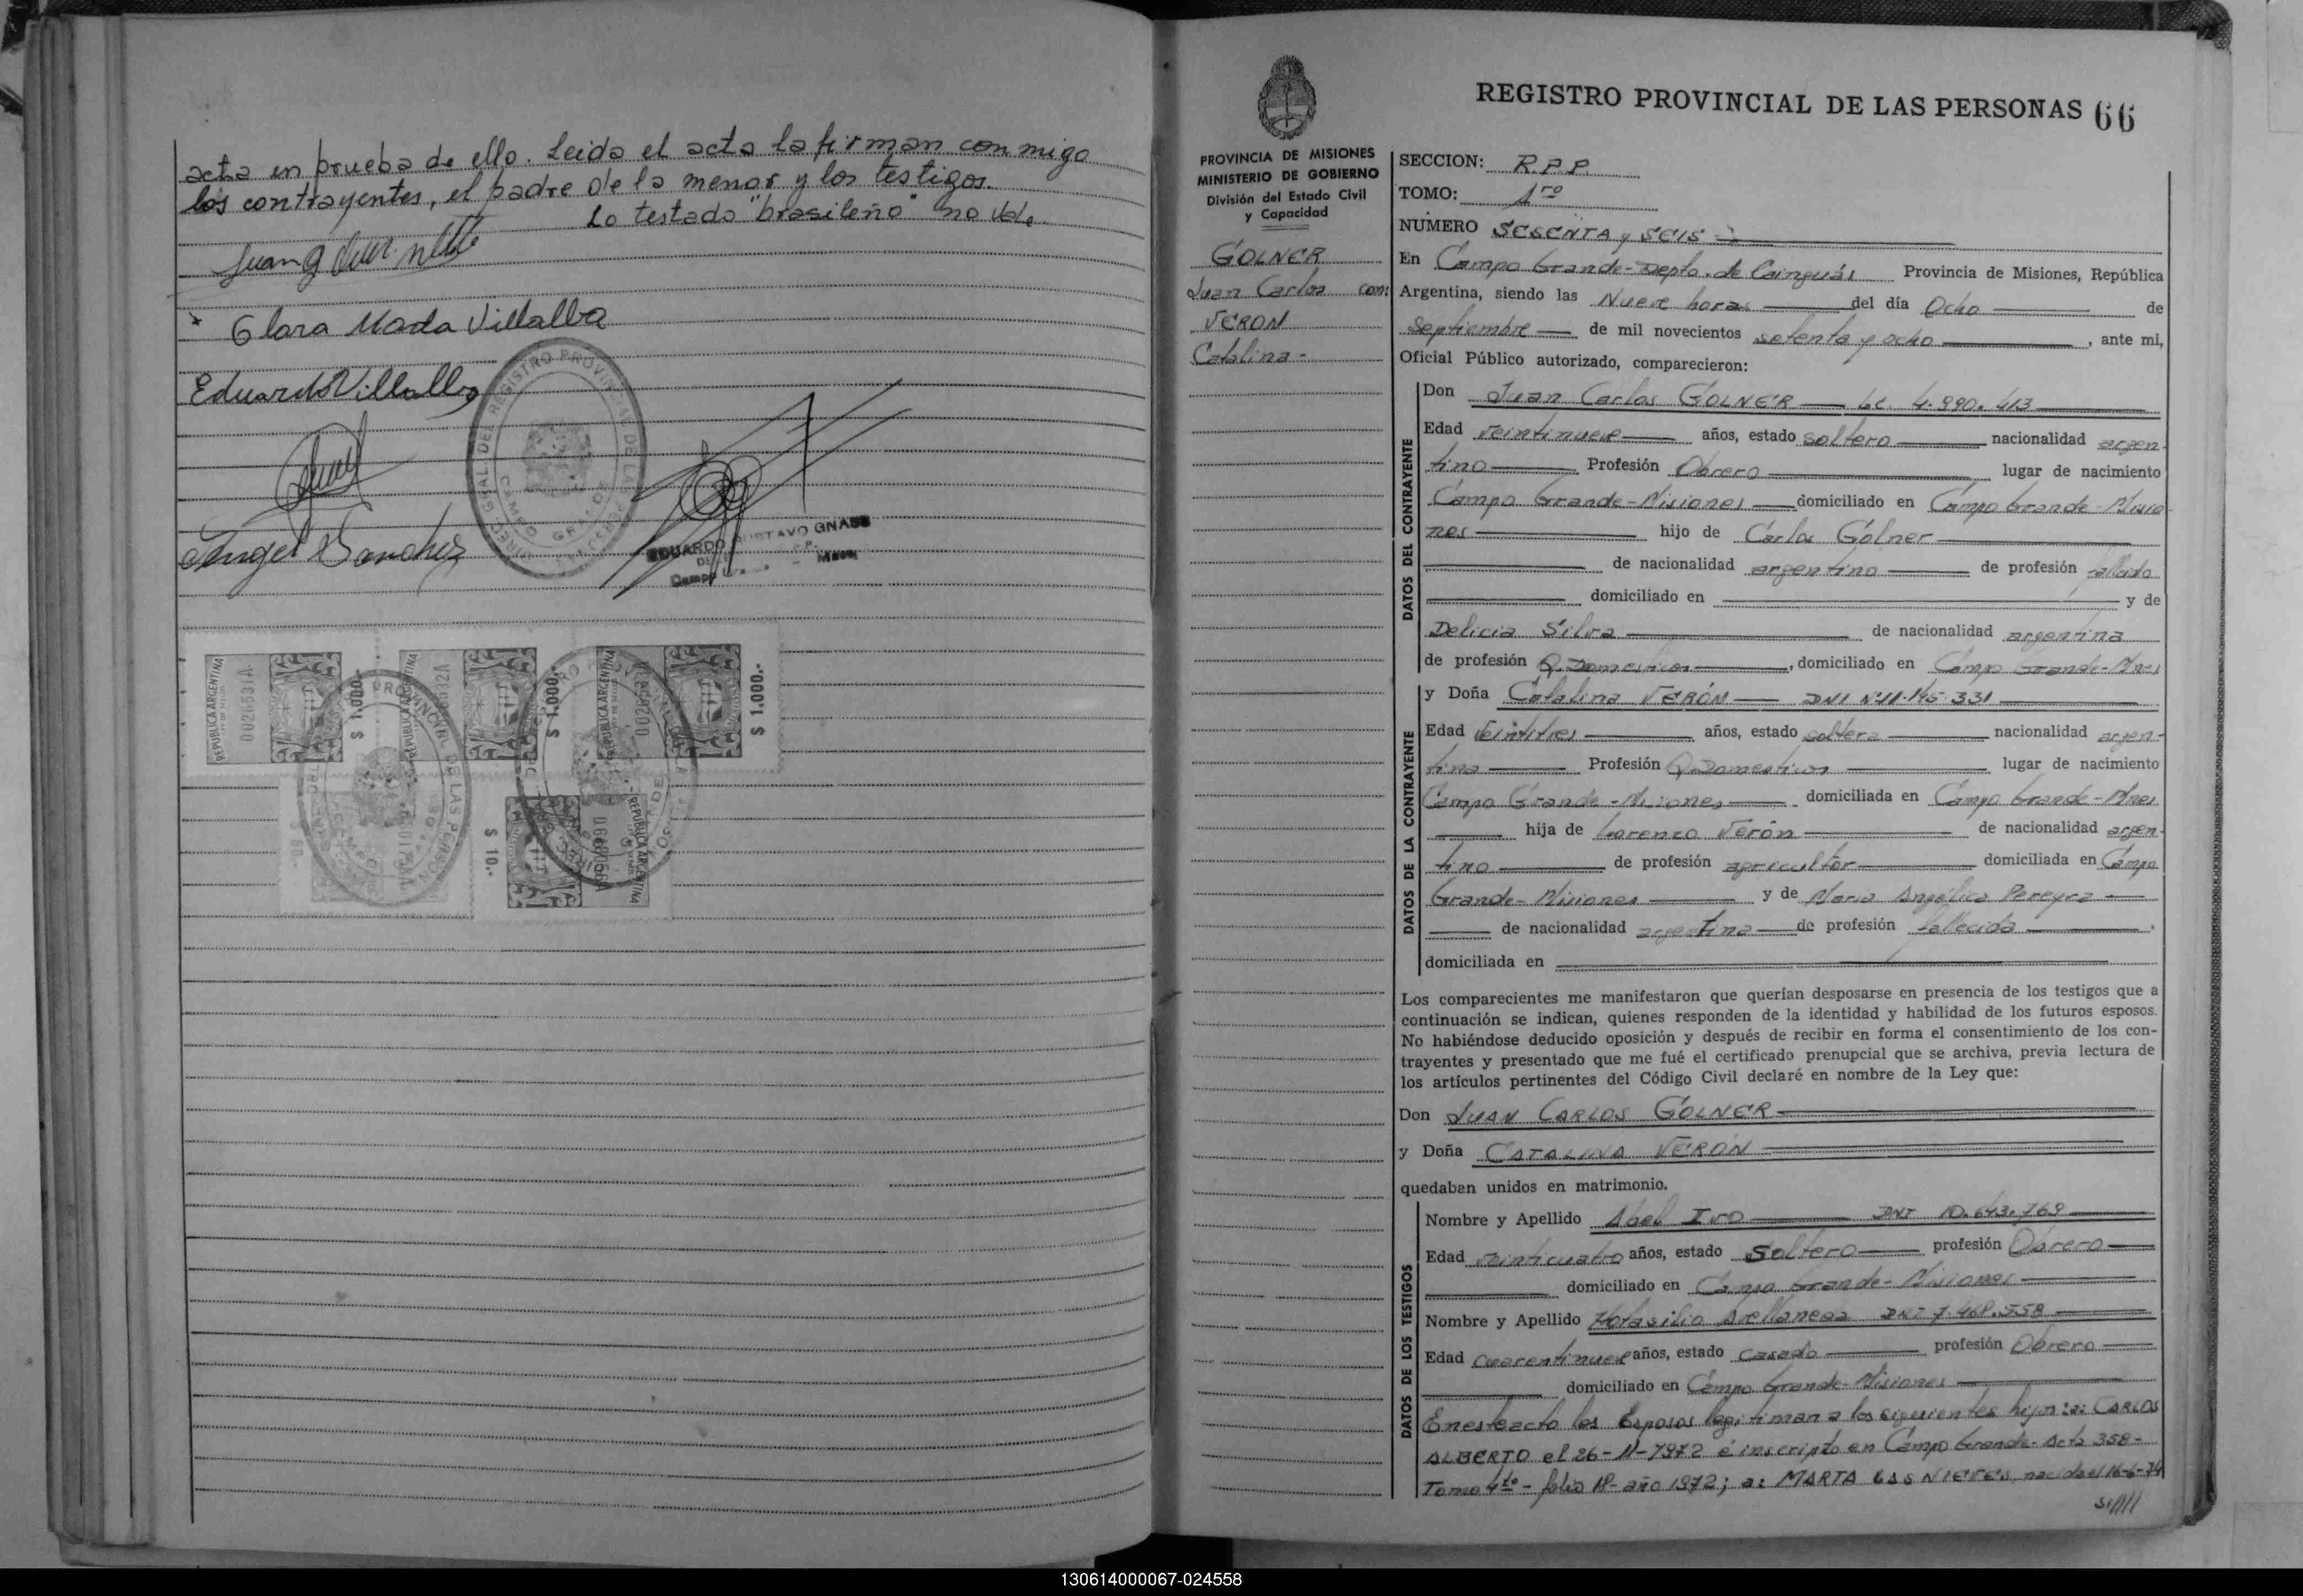 acta en prueba de ello. Leida el acta la firman conmigo
los contrayentes, el padre de la menor y los testigos.
Lo testado "brasileño" no vale
Clara Marta Villalba
Eduardo Villalba
Angel Sanchez
EDUARDO GUSTAVO GNASS
REPUBLICA ARGENTINA
$ 1.000.-
REPUBLICA ARGENTINA
$ 1.000.-
REPUBLICA ARGENTINA
$ 1.000.-
$ 10.-
REPUBLICA ARGENTINA
REGISTRO PROVINCIAL DE LAS PERSONAS 66
PROVINCIA DE MISIONES
MINISTERIO DE GOBIERNO
División del Estado Civil
y Capacidad
GOLNER
Juan Carlos con:
VERON
Catalina-
SECCION: R.P.P.
TOMO: 1ro
NUMERO SESENTA y SEIS
En Campo Grande-Depto. de Cainguás Provincia de Misiones, República
Argentina, siendo las Nueve horas del día Ocho de
Septiembre de mil novecientos setenta y ocho, ante mi,
Oficial Público autorizado, comparecieron:
DATOS DEL CONTRAYENTE
Don Juan Carlos GÓLNER L.C. 4.990.413
Edad veintinueve años, estado soltero nacionalidad argen-
tino Profesión Obrero lugar de nacimiento
Campo Grande-Misiones domiciliado en Campo Grande-Misio-
nes hijo de Carlos Gólner
de nacionalidad argentino de profesión fallecido
domiciliado en y de
Delicia Silva de nacionalidad argentina
de profesión Q. Domesticos, domiciliado en Campo Grande-Mnes
DATOS DE LA CONTRAYENTE
y Doña Catalina VERÓN DNI Nº 11.145.331
Edad veintitres años, estado soltera nacionalidad argen-
tina Profesión Q. Domesticos lugar de nacimiento
Campo Grande-Misiones domiciliada en Campo Grande-Mnes
hija de Lorenzo Verón de nacionalidad argen-
tino de profesión agricultor domiciliada en Campo
Grande-Misiones y de Maria Angélica Pereyra
de nacionalidad argentina de profesión fallecida,
domiciliada en
Los comparecientes me manifestaron que querían desposarse en presencia de los testigos que a
continuación se indican, quienes responden de la identidad y habilidad de los futuros esposos.
No habiéndose deducido oposición y después de recibir en forma el consentimiento de los con-
trayentes y presentado que me fué el certificado prenupcial que se archiva, previa lectura de
los artículos pertinentes del Código Civil declaré en nombre de la Ley que:
Don JUAN CARLOS GÓLNER
y Doña CATALINA VERÓN
quedaban unidos en matrimonio.
DATOS DE LOS TESTIGOS
Nombre y Apellido Abel Ivo DNI 10.643.769
Edad veinticuatro años, estado soltero profesión Obrero
domiciliado en Campo Grande-Misiones
Nombre y Apellido Horasilio Avellaneda DNI 7.468.558
Edad cuarentinueve años, estado casado profesión Obrero
domiciliado en Campo Grande-Misiones
En este acto los Esposos legitiman a los siguientes hijos: a: CARLOS
ALBERTO el 26-11-1972 é inscripto en Campo Grande-Acta 358-
Tomo 4to-folio 18-año 1972; a: MARTA LAS NIEVES, nacida el 16-6-74
130614000067-024558